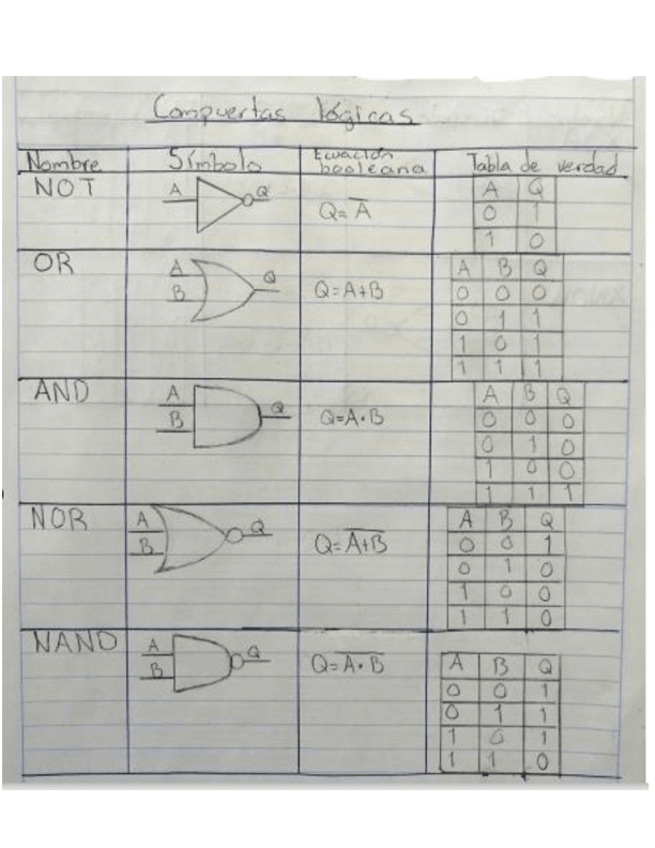 Compuertas lógicas
Nombre Símbolo Ecuación booleana Tabla de verdad
NOT
A Q
Q=A̅
A Q
0 1
1 0
OR
A
B
Q
Q=A+B
A B Q
0 0 0
0 1 1
1 0 1
1 1 1
AND
A
B
Q
Q=A·B
A B Q
0 0 0
0 1 0
1 0 0
1 1 1
NOR
A
B
Q
Q=A̅+̅B̅
A B Q
0 0 1
0 1 0
1 0 0
1 1 0
NAND
A
B
Q
Q=A̅·̅B̅
A B Q
0 0 1
0 1 1
1 0 1
1 1 0